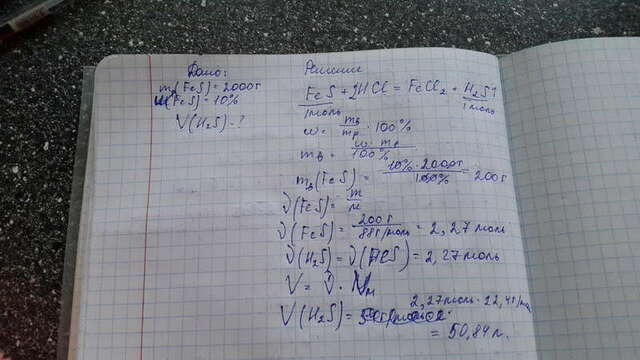 Дано:
m(FeS) = 2000г
ω(FeS) = 10%
V(H₂S) - ?
Решение
FeS + 2HCl = FeCl₂ + H₂S↑
1моль 1моль
ω = mв/mр · 100%
mв = ω · mр / 100%
mв(FeS) = 10% · 200г / 100% = 200г
ν(FeS) = m/M
ν(FeS) = 200г / 88г/моль = 2,27 моль
ν(H₂S) = ν(FeS) = 2,27 моль
V = ν · Vм
V(H₂S) = 2,27моль · 22,4
= 50,84 л.